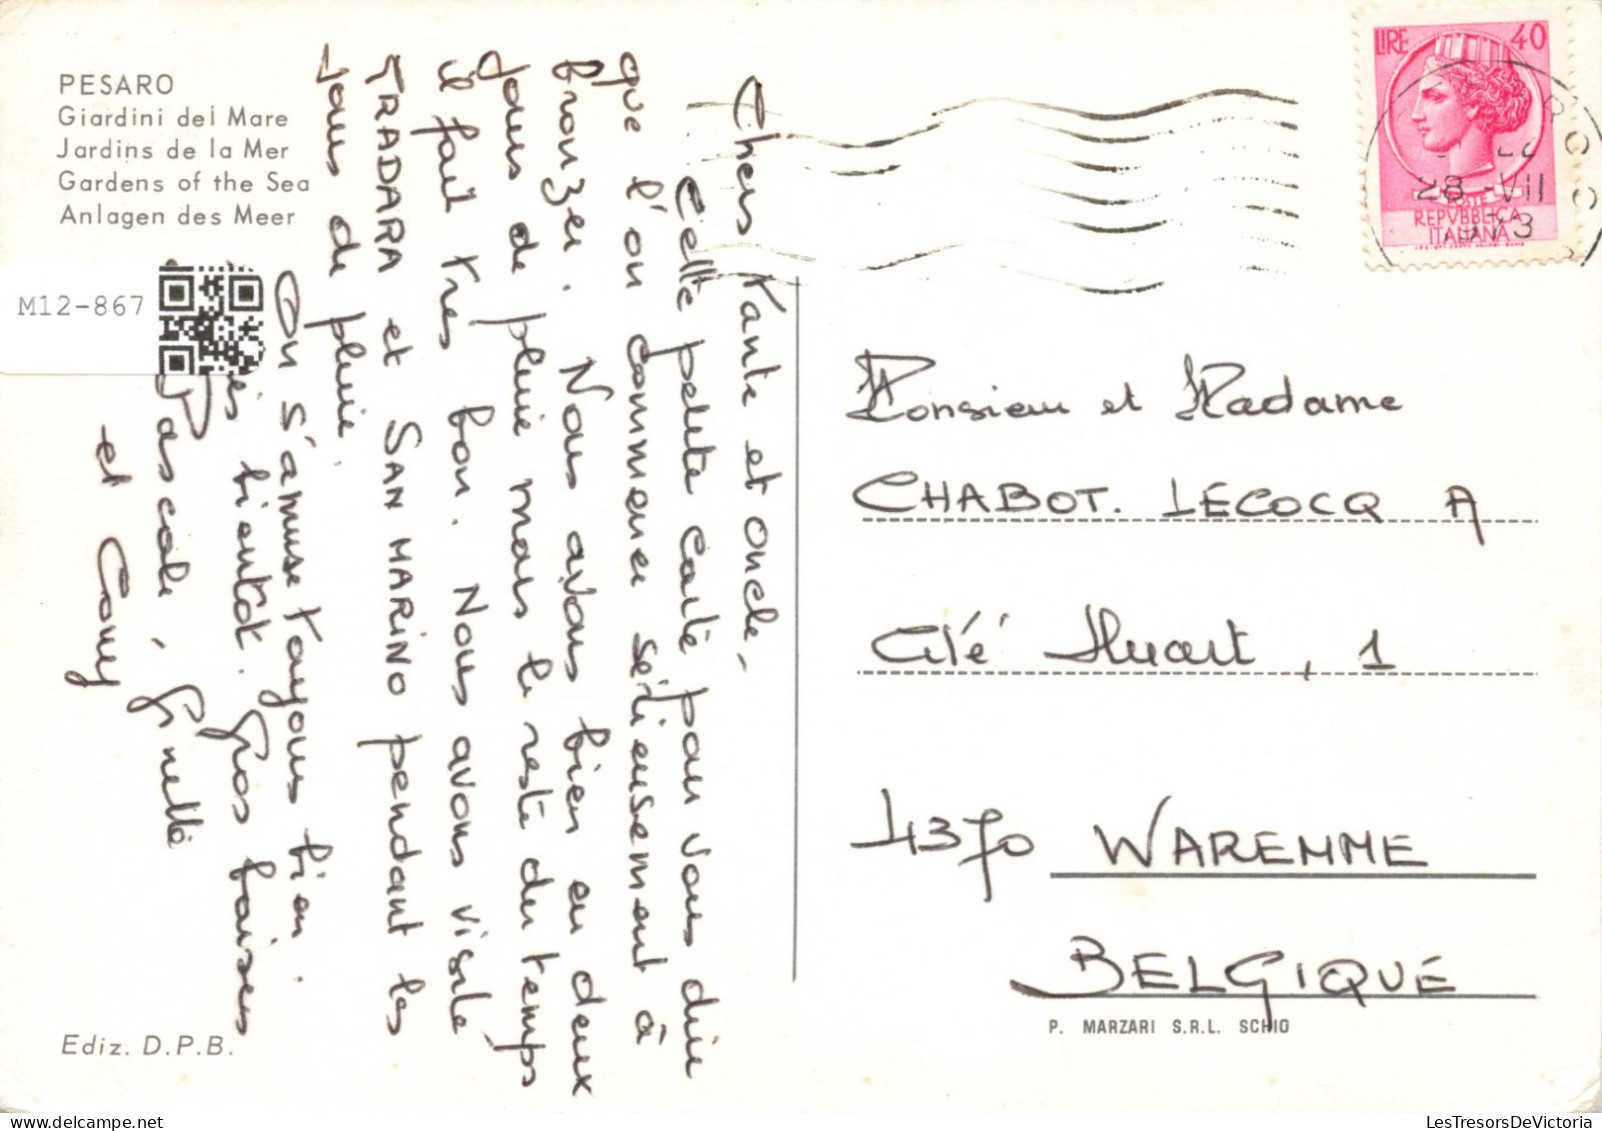 PESARO
Giardini del Mare
Jardins de la Mer
Gardens of the Sea
Anlagen des Meer
M12-867
Chers Tante et oncle,
Cette petite carte pour vous dire
que l'on commence sérieusement à
bronzer. Nous avons bien eu deux
jours de pluie mais le reste du temps
il fait très bon. Nous avons visité
TRADARA et SAN MARINO pendant les
jours de pluie.
On s'amuse toujours bien.
bientôt. Gros baisers
Pascale, Ginette
et Cony
Ediz. D.P.B.
LIRE 40
POSTE
REPVBBLICA
ITALIANA
28 -VII
1973
Monsieur et Madame
CHABOT. LECOCQ A
Cité Huart, 1
4370 WAREMME
BELGIQUE
P. MARZARI S.R.L. SCHIO
LesTresorsDeVictoria